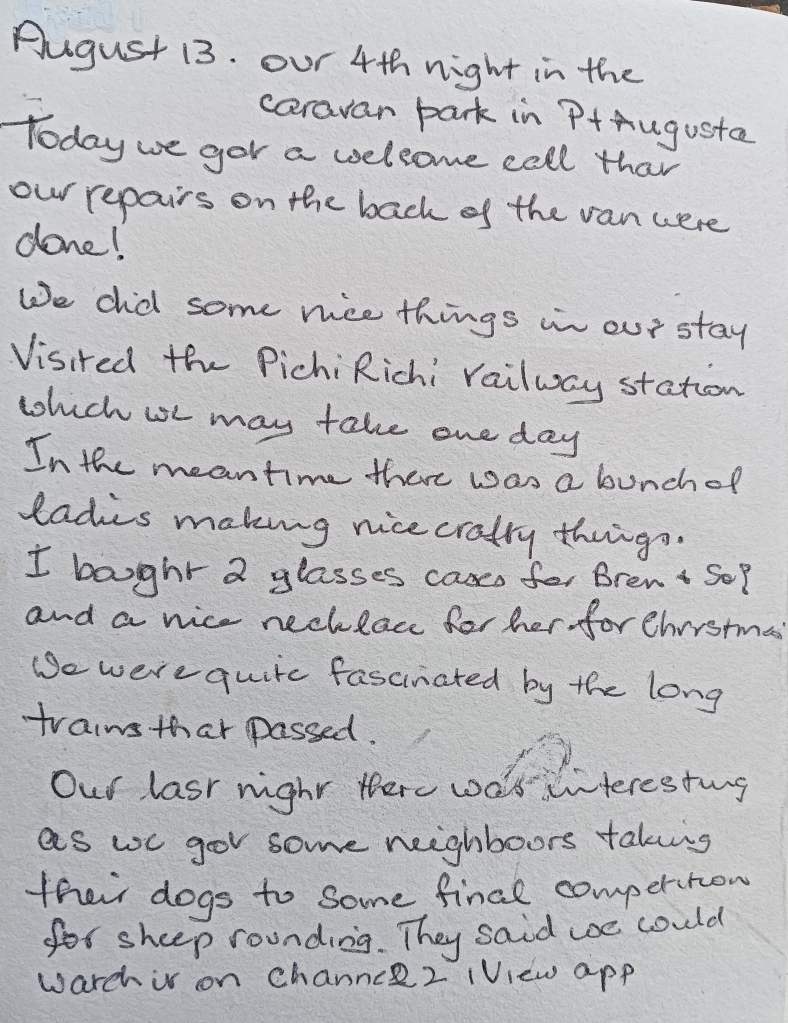 August 13. our 4th night in the
caravan park in Pt Augusta
Today we got a welcome call that
our repairs on the back of the van were
done!
We did some nice things in our stay
Visited the Pichi Richi railway station
which we may take one day
In the meantime there was a bunch of
ladies making nice crafty things.
I bought 2 glasses cases for Bren &
and a nice necklace for her for Christmas
We were quite fascinated by the long
trains that passed.
Our last night there was interesting
as we got some neighbours taking
their dogs to some final competition
for sheep rounding. They said we could
watch it on Channel 2 iView app